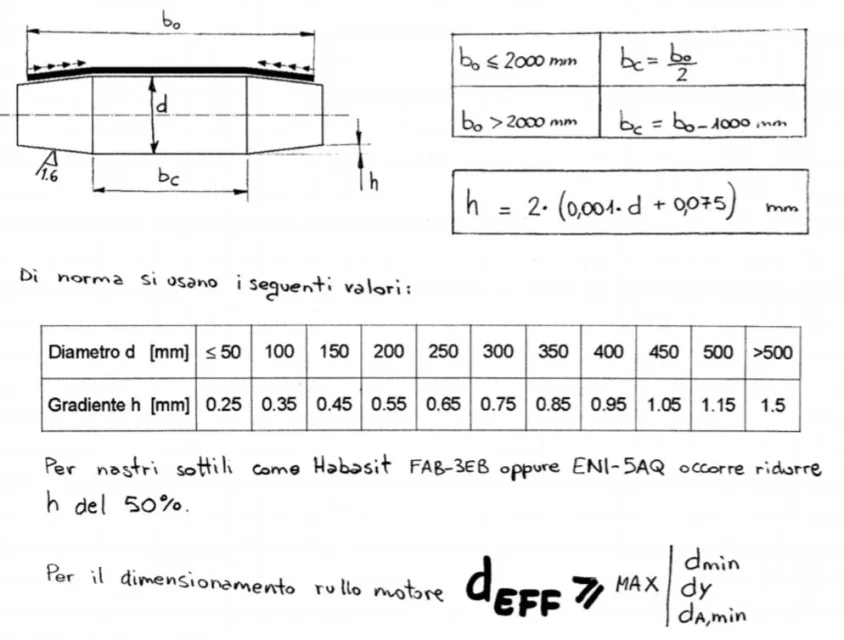 b₀
d
1.6
bc
h
b₀ ≤ 2000 mm bc = b₀/2
b₀ > 2000 mm bc = b₀ - 1000 mm
h = 2·(0,001·d + 0,075) mm
Di norma si usano i seguenti valori:
Diametro d [mm] ≤ 50 100 150 200 250 300 350 400 450 500 >500
Gradiente h [mm] 0.25 0.35 0.45 0.55 0.65 0.75 0.85 0.95 1.05 1.15 1.5
Per nastri sottili come Habasit FAB-3EB oppure ENI-5AQ occorre ridurre
h del 50%.
Per il dimensionamento rullo motore dEFF ≥ MAX | dmin
dy
dA,min